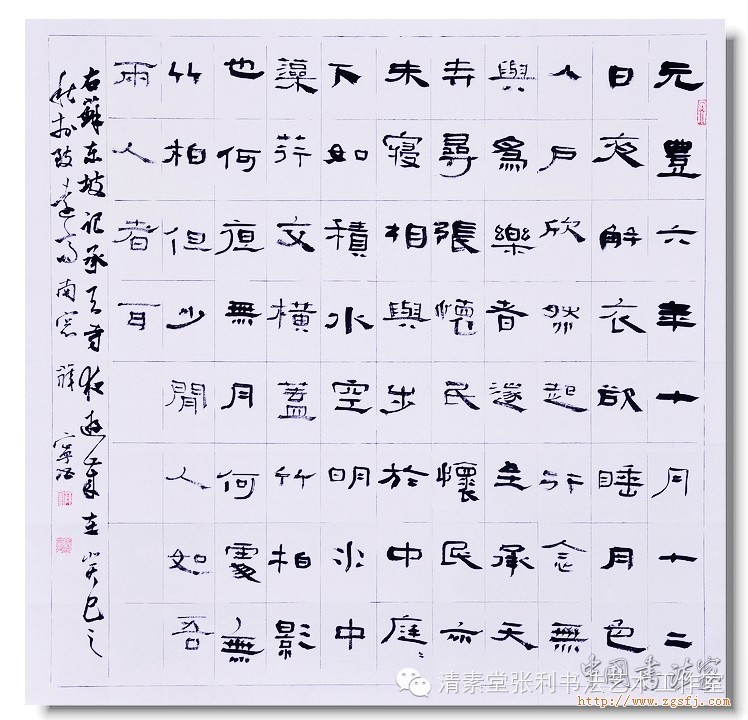 元豐六年十月十二
日夜解衣欲睡月色
入户欣然起行念無
與爲樂者遂至承天
寺尋張懷民懷民亦
未寢相與步於中庭〻
下如積水空明水中
藻荇交橫蓋竹柏影
也何夜無月何處無
竹柏但少閒人如吾
兩人者耳
右蘇東坡記承天寺夜遊歲在癸巳之
秋於致遠南窗薛
中国书法家
清素堂张利书法艺术工作室
http://www.zgsfj.com